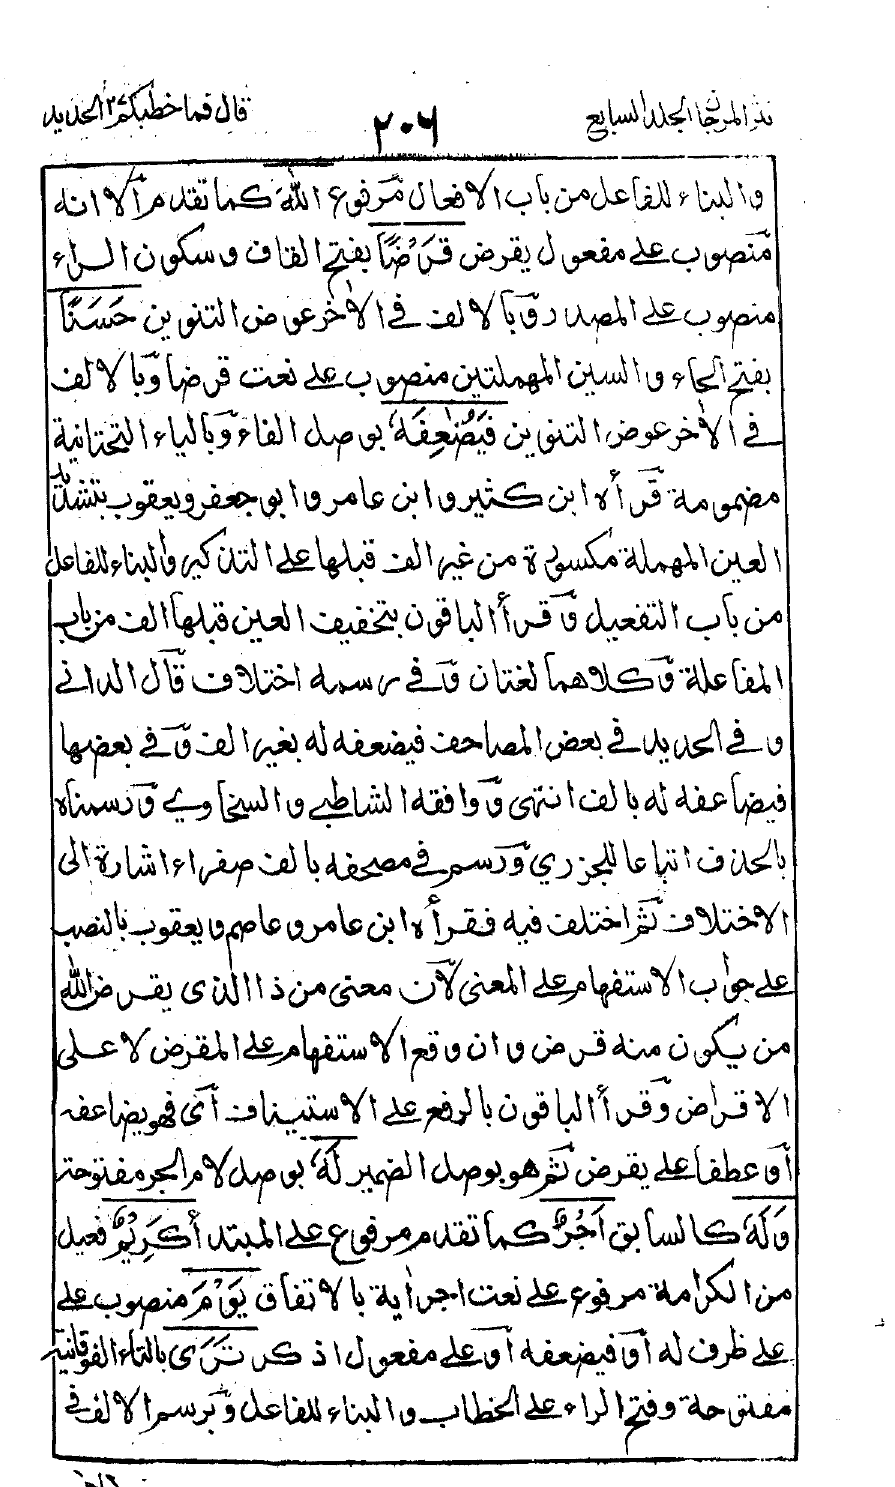 نثر المرجان الجلد السابع
٢٠٦
قال فما خطبكم ٢٧ الحديد
والبناء للفاعل من باب الافعال مرفوع الله كما تقدم آلا انه
منصوب على مفعول يقرض قَرْضًا بفتح القاف وسكون الراء
منصوب على المصدر وبالالف في الاخر عوض التنوين حَسَنًا
بفتح الحاء والسين المهملتين منصوب على نعت قرضا وبالالف
في الاخر عوض التنوين فَيُضٰعِفَهٗ بوصل الفاء وبالياء التحتانية
مضمومة قرأه ابن كثير وابن عامر وابو جعفر ويعقوب بتشديد
العين المهملة مكسورة من غير الف قبلها على التذكير والبناء للفاعل
من باب التفعيل وقرأ الباقون بتخفيف العين قبلها الف من باب
المفاعلة وكلاهما لغتان وفي رسمه اختلاف قال الداني
وفي الحديد في بعض المصاحف فيضعفه له بغير الف وفي بعضها
فيضاعفه له بالف انتهى ووافقه الشاطبي والسخاوي ورسمناه
بالحذف اتباعا للجزري ورسم في مصحفه بالف صفراء اشارة الى
الاختلاف ثم اختلف فيه فقرأه ابن عامر وعاصم ويعقوب بالنصب
على جواب الاستفهام على المعنى لآن معنى من ذا الذى يقرض الله
من يكون منه قرض وان وقع الاستفهام على المقرض لا على
الاقراض وقرأ الباقون بالرفع على الاستيناف آى فهو يضاعفه
آو عطفا على يقرض ثم هو بوصل الضمير لَهٗ بوصل لام الجر مفتوحة
وَلَهٗ كالسابق اَجْرٌ كما تقدم مرفوع على المبتدأ كَرِيْمٌ فعيل
من الكرامة مرفوع على نعت اجر اية بالاتفاق يَوْمَ منصوب على
على ظرف له آو فيضعفه آو على مفعول اذكر تَرَى بالتاء الفوقانية
مفتوحة وفتح الراء على الخطاب والبناء للفاعل وبرسم الالف في